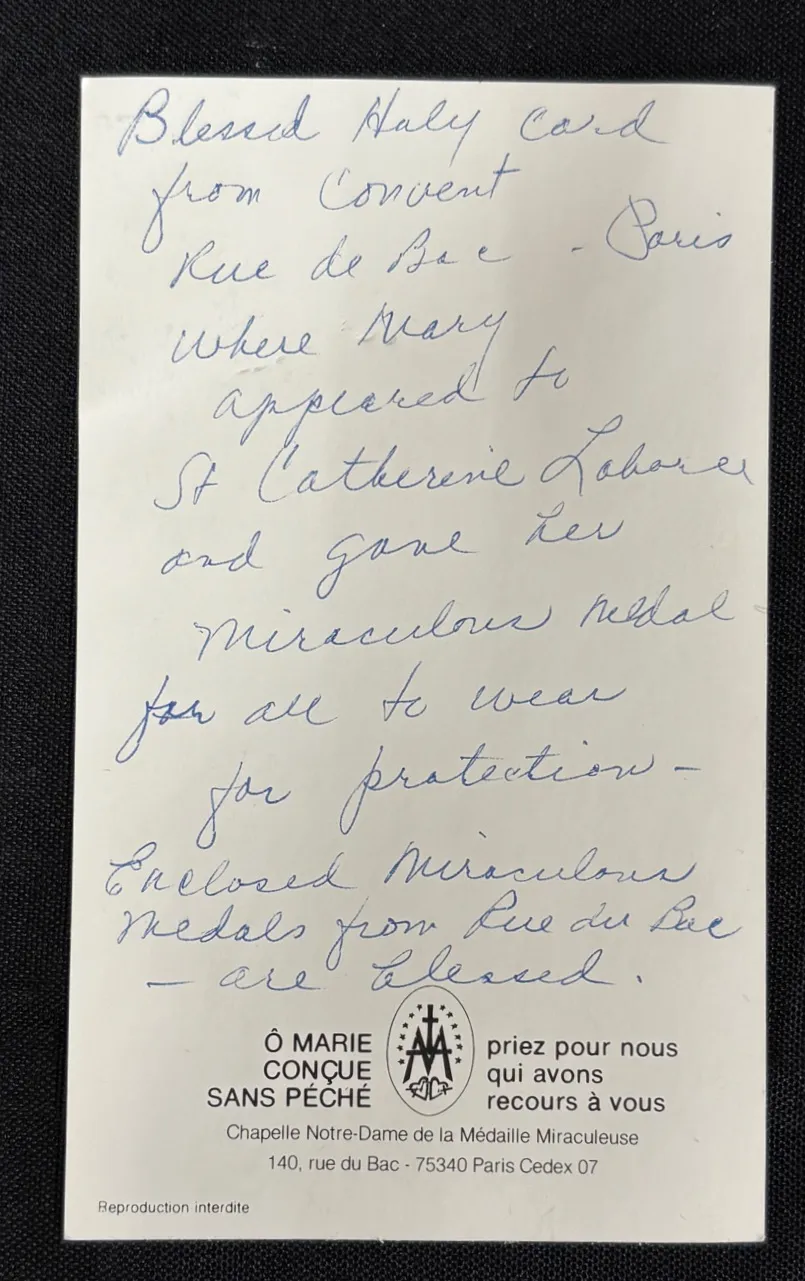 Blessed Holy Card
from Convent
Rue de Bac - Paris
where Mary
appeared to
St Catherine Laboure
and gave her
Miraculous Medal
for all to wear
for protection -
Enclosed Miraculous
Medals from Rue du Bac
- are blessed.
Ô MARIE
CONÇUE
SANS PÉCHÉ
priez pour nous
qui avons
recours à vous
Chapelle Notre-Dame de la Médaille Miraculeuse
140, rue du Bac - 75340 Paris Cedex 07
Reproduction interdite